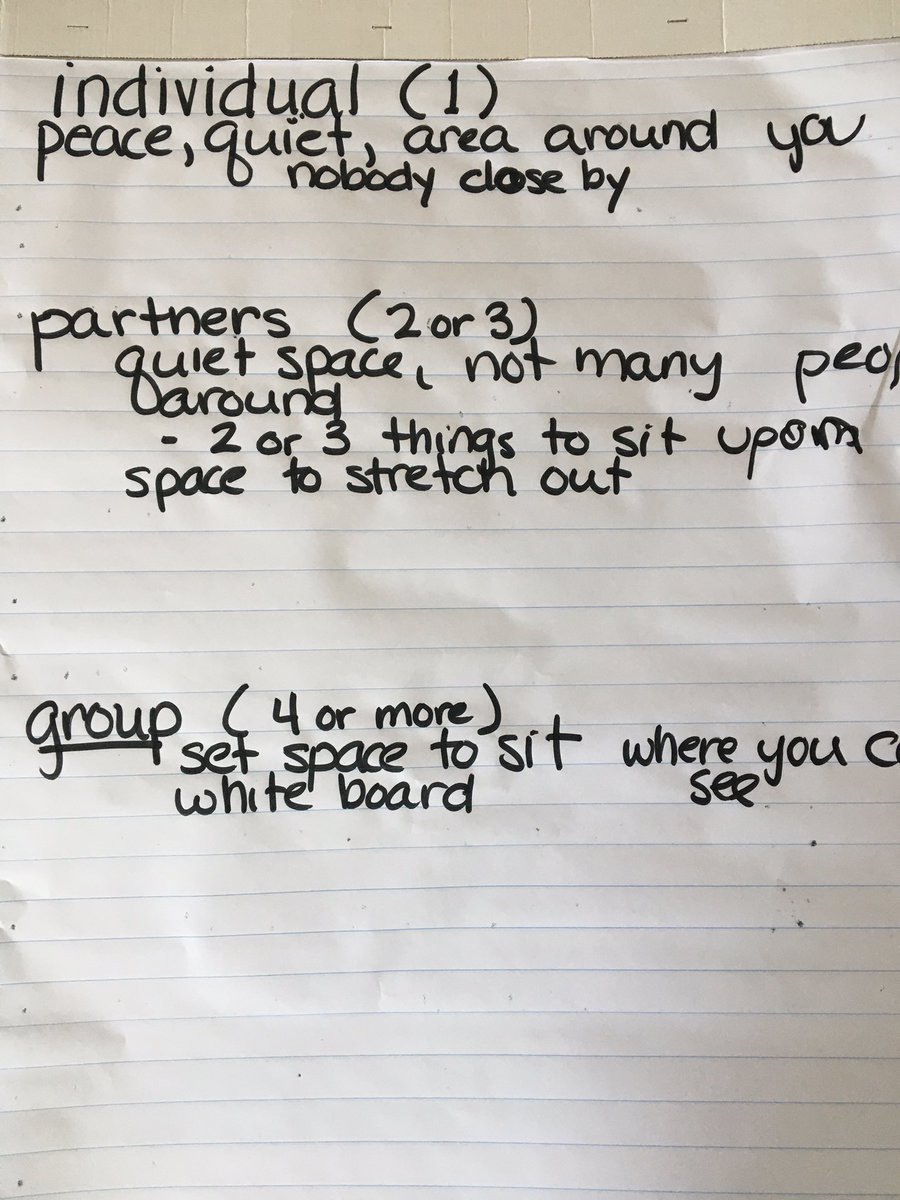 individual (1)
peace, quiet, area around you
nobody close by
partners (2 or 3)
quiet space, not many peo
around
- 2 or 3 things to sit upon
space to stretch out
group (4 or more)
set space to sit where you c
white board see